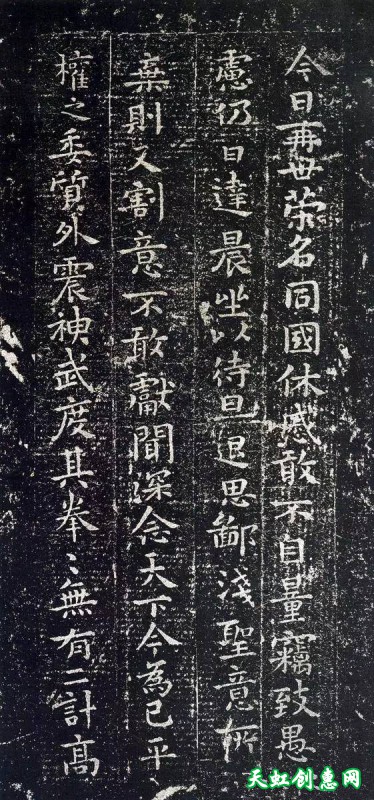 今日再世榮名同國休慼敢不自量竊致愚
慮仍日達晨坐以待旦退思鄙淺聖意所
棄則又割意不敢獻聞深念天下今為已平
權之委質外震神武度其拳〻無有二計高
天虹创惠网